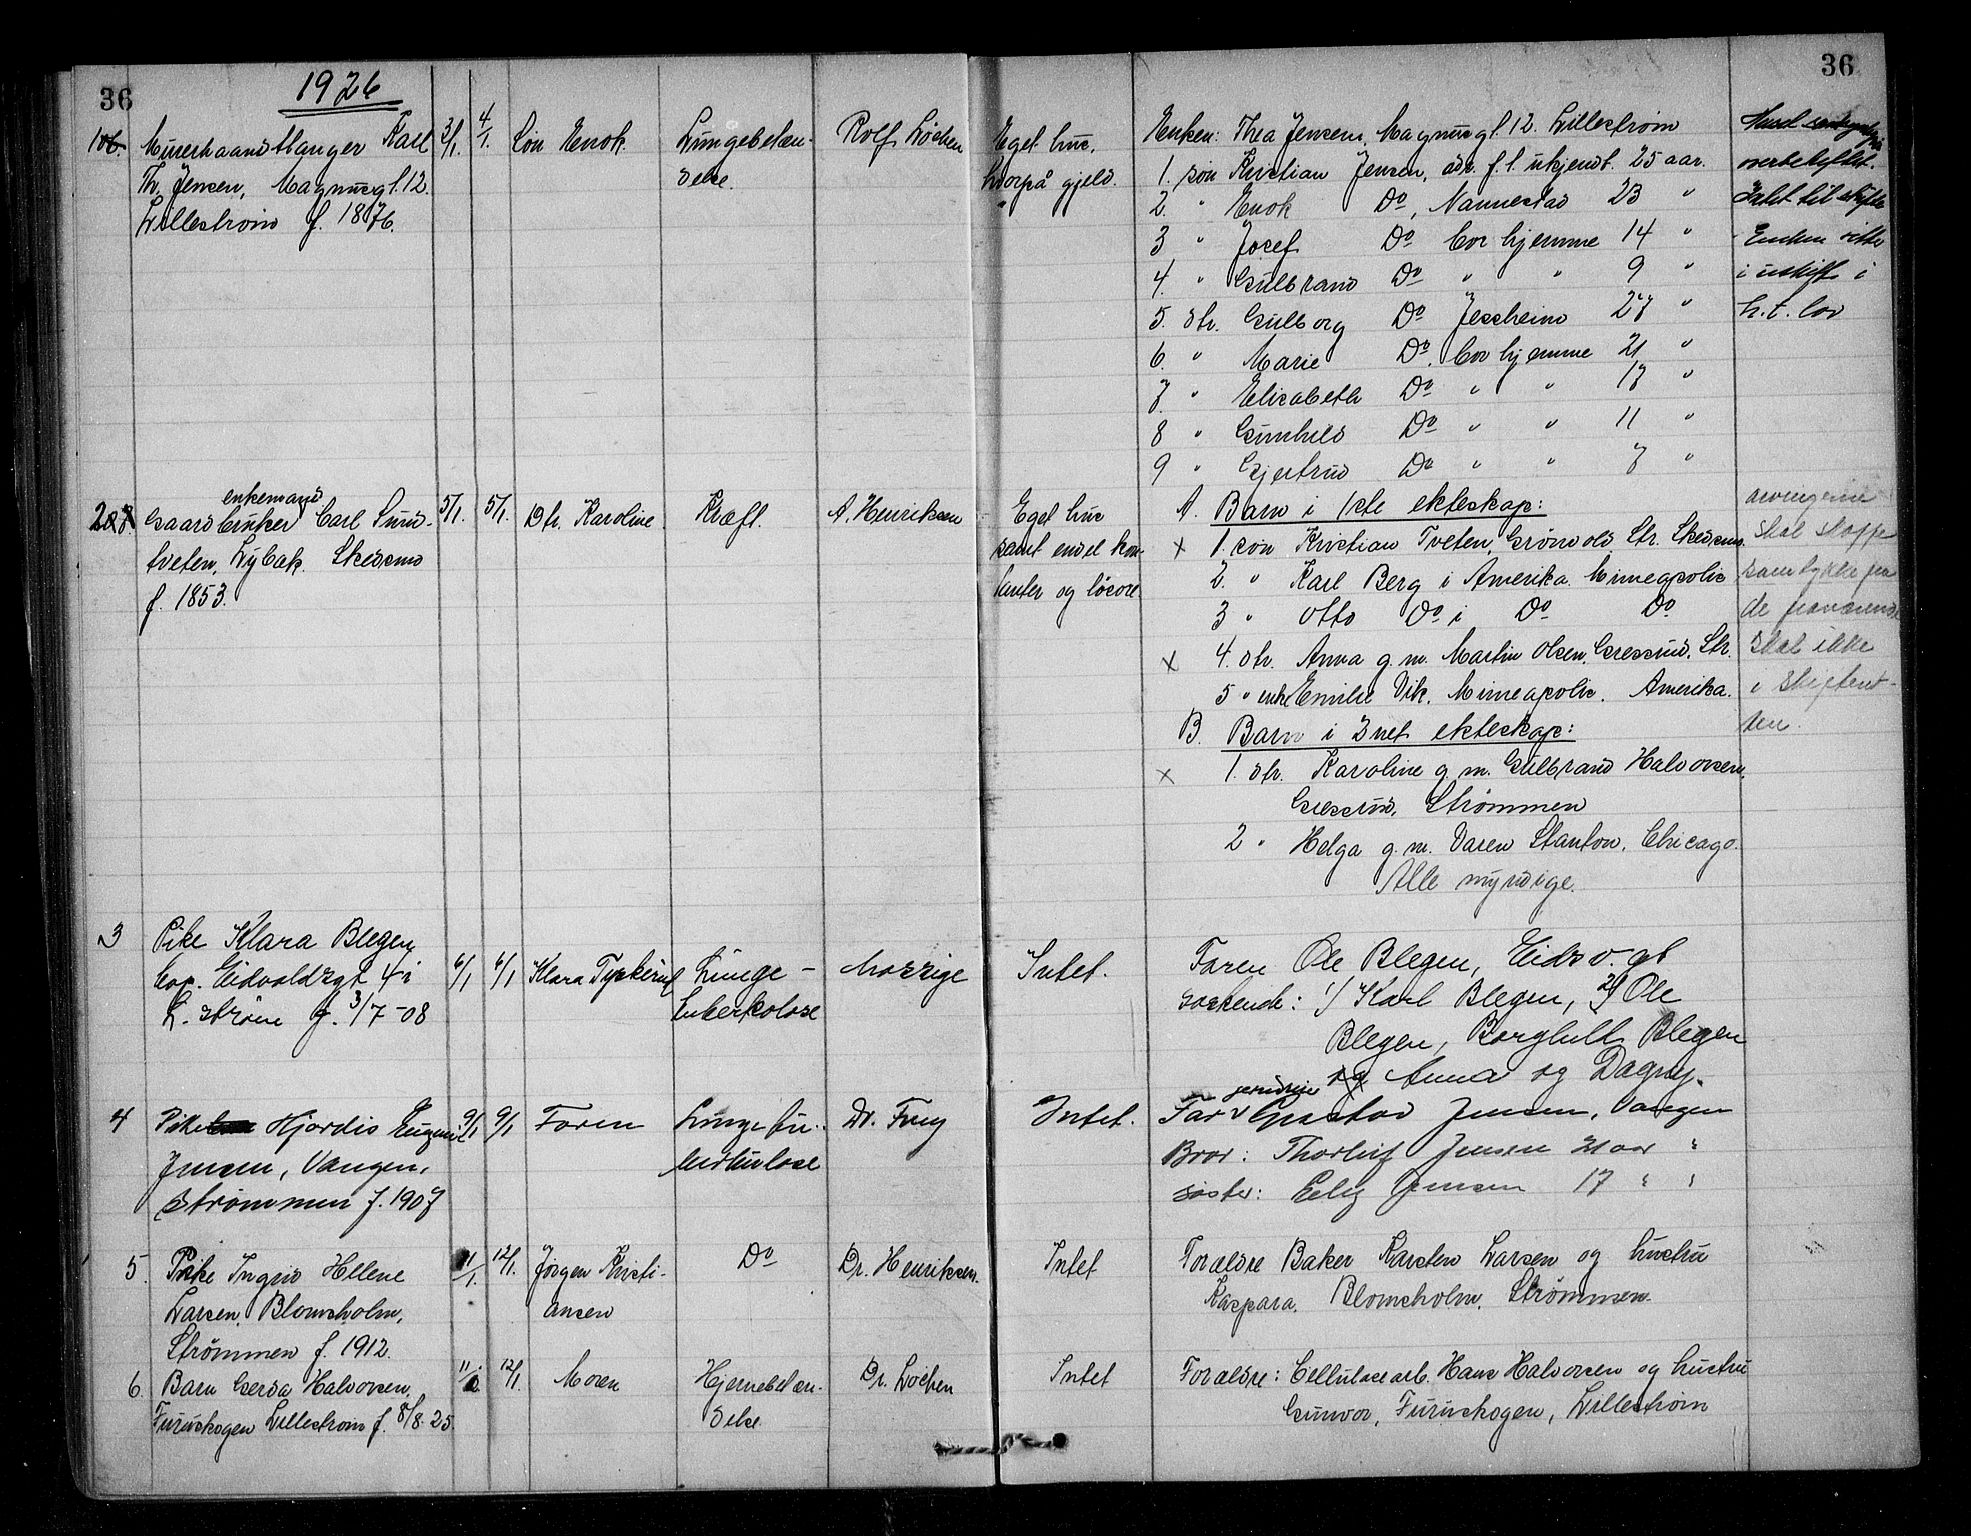 36
1926
36
1
Murerhaandlanger Karl
Th. Jensen, Magnusgt. 12.
Lillestrøm f. 1876.
3/1.
4/1.
Søn Enok
Lungebetæn-
delse.
Rolf Løchen
Eget hus,
hvorpå gjeld.
Enken: Thea Jensen, Magnusgt. 12. Lillestrøm
1. søn Kristian Jensen, adr. f. t. ukjendt. 25 aar.
2. " Enok Do, Nannestad 23 "
3 " Josef Do bor hjemme 14 "
4. " Gulbrand Do " " 9 "
5. dtr. Gulborg Do Jessheim 27 "
6. " Marie Do. bor hjemme 21 "
7. " Elisabeth Do " " 17 "
8 " Gunhild Do " " 11 "
9 " Gjertrud Do " " 7 "
overbeheftet.
Intet til skifte
Enken sitter
i uskift i
h. t. lov
2
enkemand
Gaardbruker Carl Sund-
tveten, Lybæk. Skedsmo
f. 1853.
5/1.
5/1.
Dtr. Karoline
Kræft.
A. Henriksen
Eget hus
samt endel kon-
tanter og løsøre.
A. Barn i 1ste ekteskap:
x 1. søn Kristian Tveten, Grønvold, Str. Skedsmo.
2. " Karl Berg i Amerika. Mineapolis
3 " Otto Do i Do Do
x 4. dtr. Anna g. m. Martin Olsen, Gresrud, Str.
5 " enke Emilie Vik, Mineapolis. Amerika.
B. Barn i 2net ekteskap:
x 1. dtr. Karoline g. m. Gulbrand Halvorsen,
Gresrud, Strømmen
2 " Helga g. m. Varen Stanton, Chicago.
Alle myndige.
arvingerne
skal skaffe
samtykke fra
de fraværende
skal ikke
i skifteret-
ten.
3
Pike Klara Blegen,
bop. Eidvoldsgt 4 i
L. strøm f. 3/7-08
6/1
6/1
Klara Tyskerud
Lunge-
tuberkolose
Intet.
Faren Ole Blegen, Eidsv. gt
søskende: 1/ Karl Blegen, 2/ Ole
Blegen, Borghild Blegen
og Anna og Dagny.
4
Pike Hjørdis Eugenie
Jensen, Vangen,
Strømmen f. 1907
9/1
9/1
Faren
Lungetu-
berkulose
Intet.
Far Gustav Jensen, Vangen
Bror: Thorleif Jensen 21 aar "
søster: Elly Jensen 17 " "
5.
Pike Ingrid Helene
Larsen, Blomsholm,
Strømmen f. 1912.
11/1.
12/1.
Jørgen Kristi-
ansen
Do
Dr. Henriksen.
Intet
Forældre Baker Karsten Larsen og hustru
Kaspara. Blomsholm, Strømmen.
6.
Barn Gerda Halvorsen,
Furuskogen Lillestrøm f. 8/8. 25.
11/1
12/1.
Moren
Hjernebetæn-
delse.
Dr. Løchen
Intet
Forældre: Cellulosearb. Hans Halvorsen og hustru
Gunvor, Furuskogen, Lillestrøm